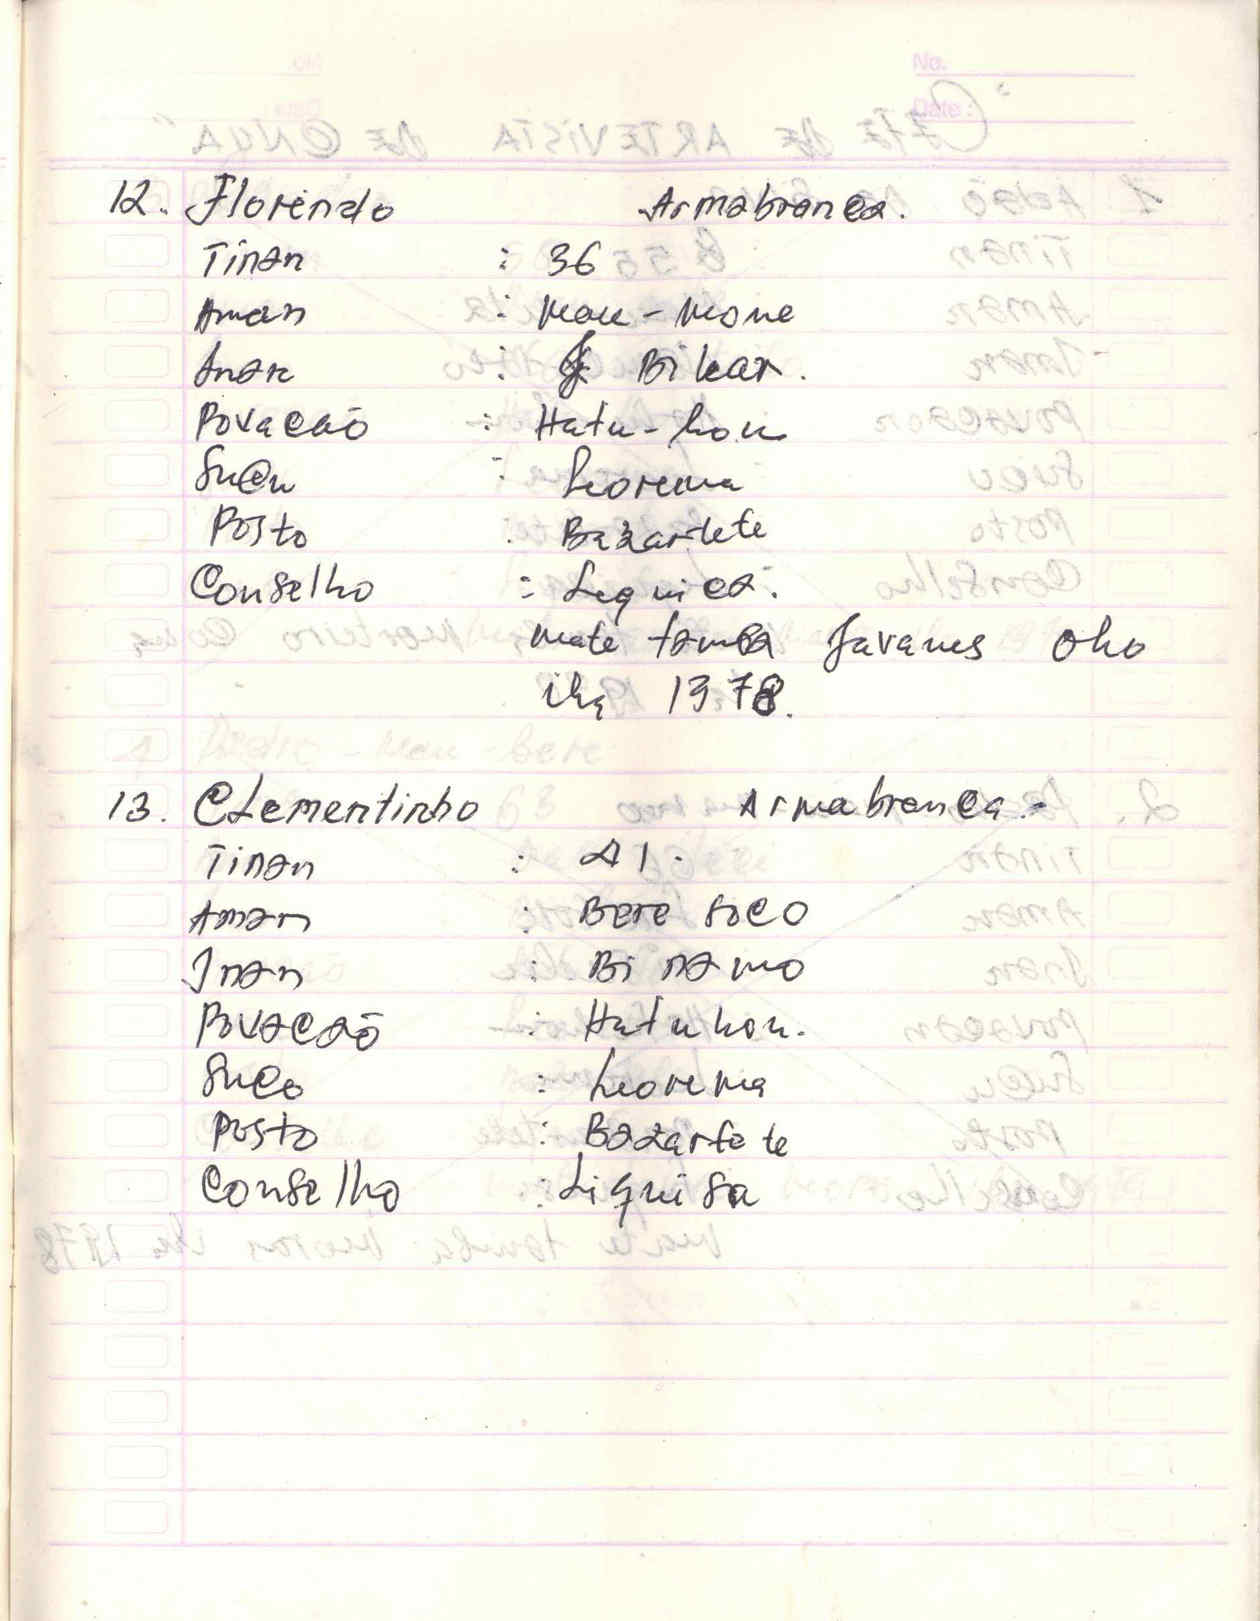 No.
Date:
12. Florindo Armabranca.
Tinan : 36
Aman : Mau-Mone
Inan : Bikar.
Povacão : Hatu-hou
Sucu : Leorema
Posto : Bazartete
Conselho : Liquica.
mate tamba Javanes oho
iha 1978.
13. CLementinho Armabranca.-
Tinan : 41.
Aman : Bere soco
Inan : Bi namo
Povacão : Hatuhou.
Suco : Leorema
Posto : Bazartete
Conselho : Liquisa